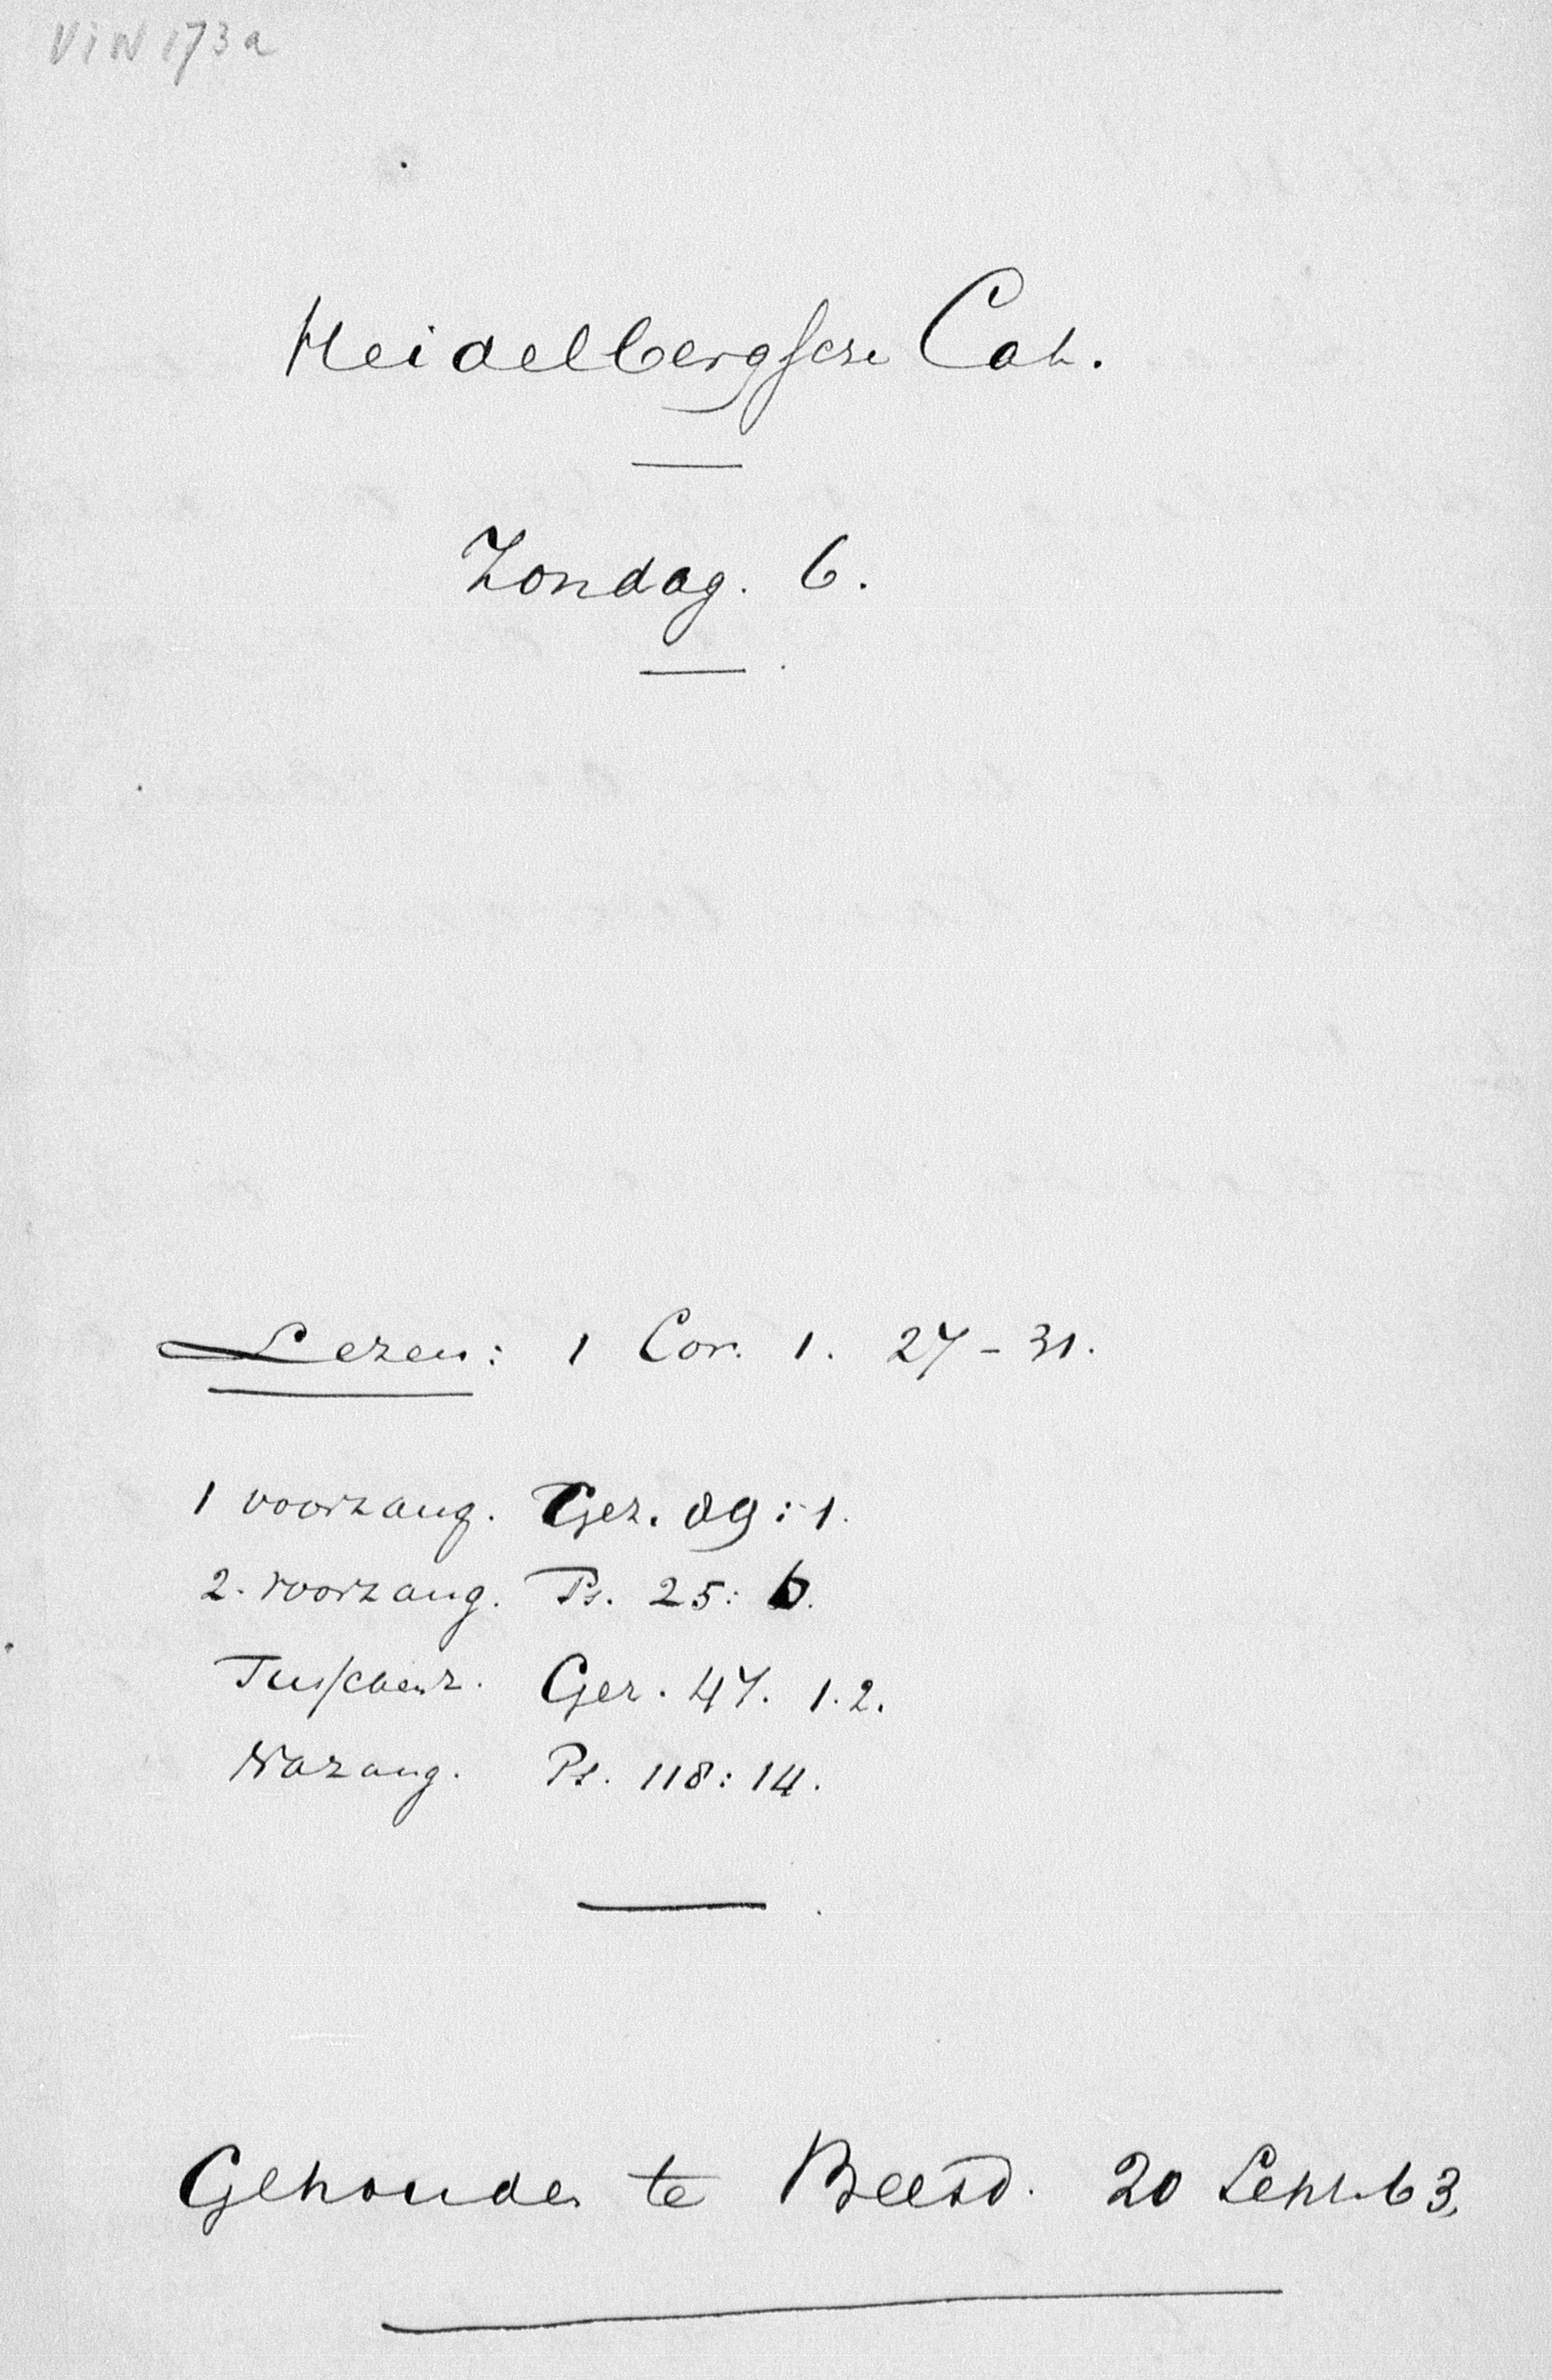 ViN 173a
Heidelbergsche Cat.
Zondag. 6.
Lezen: 1 Cor. 1. 27-31.
1 voorzang. Gez. 89:1.
2. voorzang. Ps. 25: 6.
Tusschenz. Gez. 47. 1.2.
Nazang. Ps. 118:14.
Gehouden te Beesd. 20 Sept. 63.